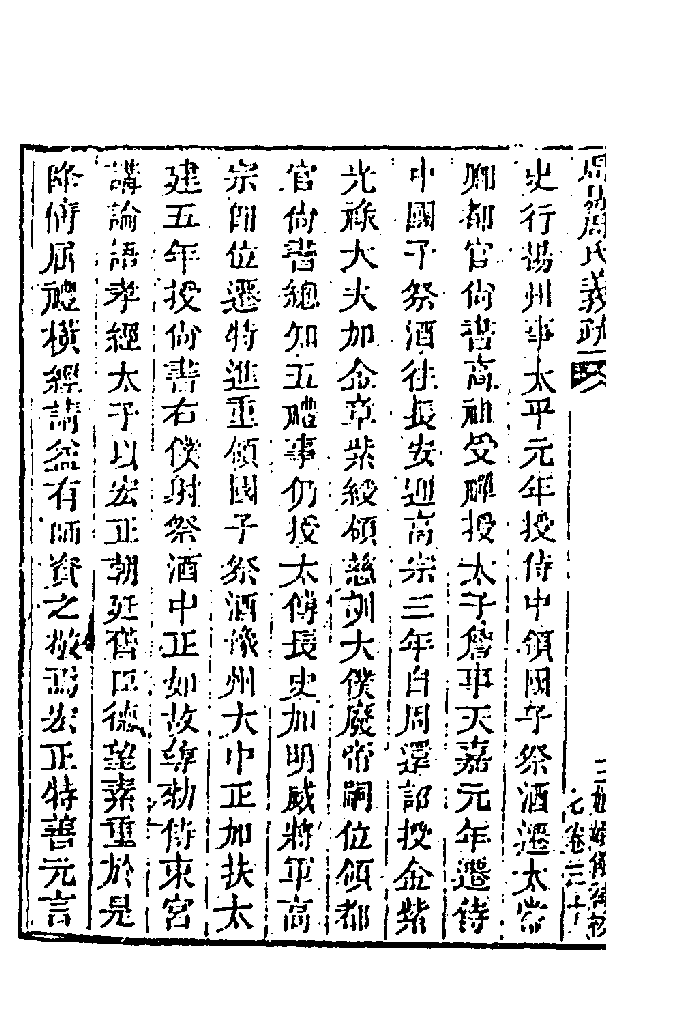 周易周氏義疏
史行揚州事太平元年授侍中領國子祭酒遷太常
卿都官尙書高祖受禪授太子詹事天嘉元年遷侍
中國子祭酒往長安迎高宗三年自周還詔授金紫
光祿大夫加金章紫綬領慈訓大僕廢帝嗣位領都
官尙書總知五禮事仍授太傅長史加明威將軍高
宗卽位遷特進重領國子祭酒豫州大中正加扶太
建五年授尙書右僕射祭酒中正如故尋勑侍東宮
講論語孝經太子以宏正朝廷舊臣德望素重於是
降情屈禮橫經請益有師資之敬焉宏正特善元言